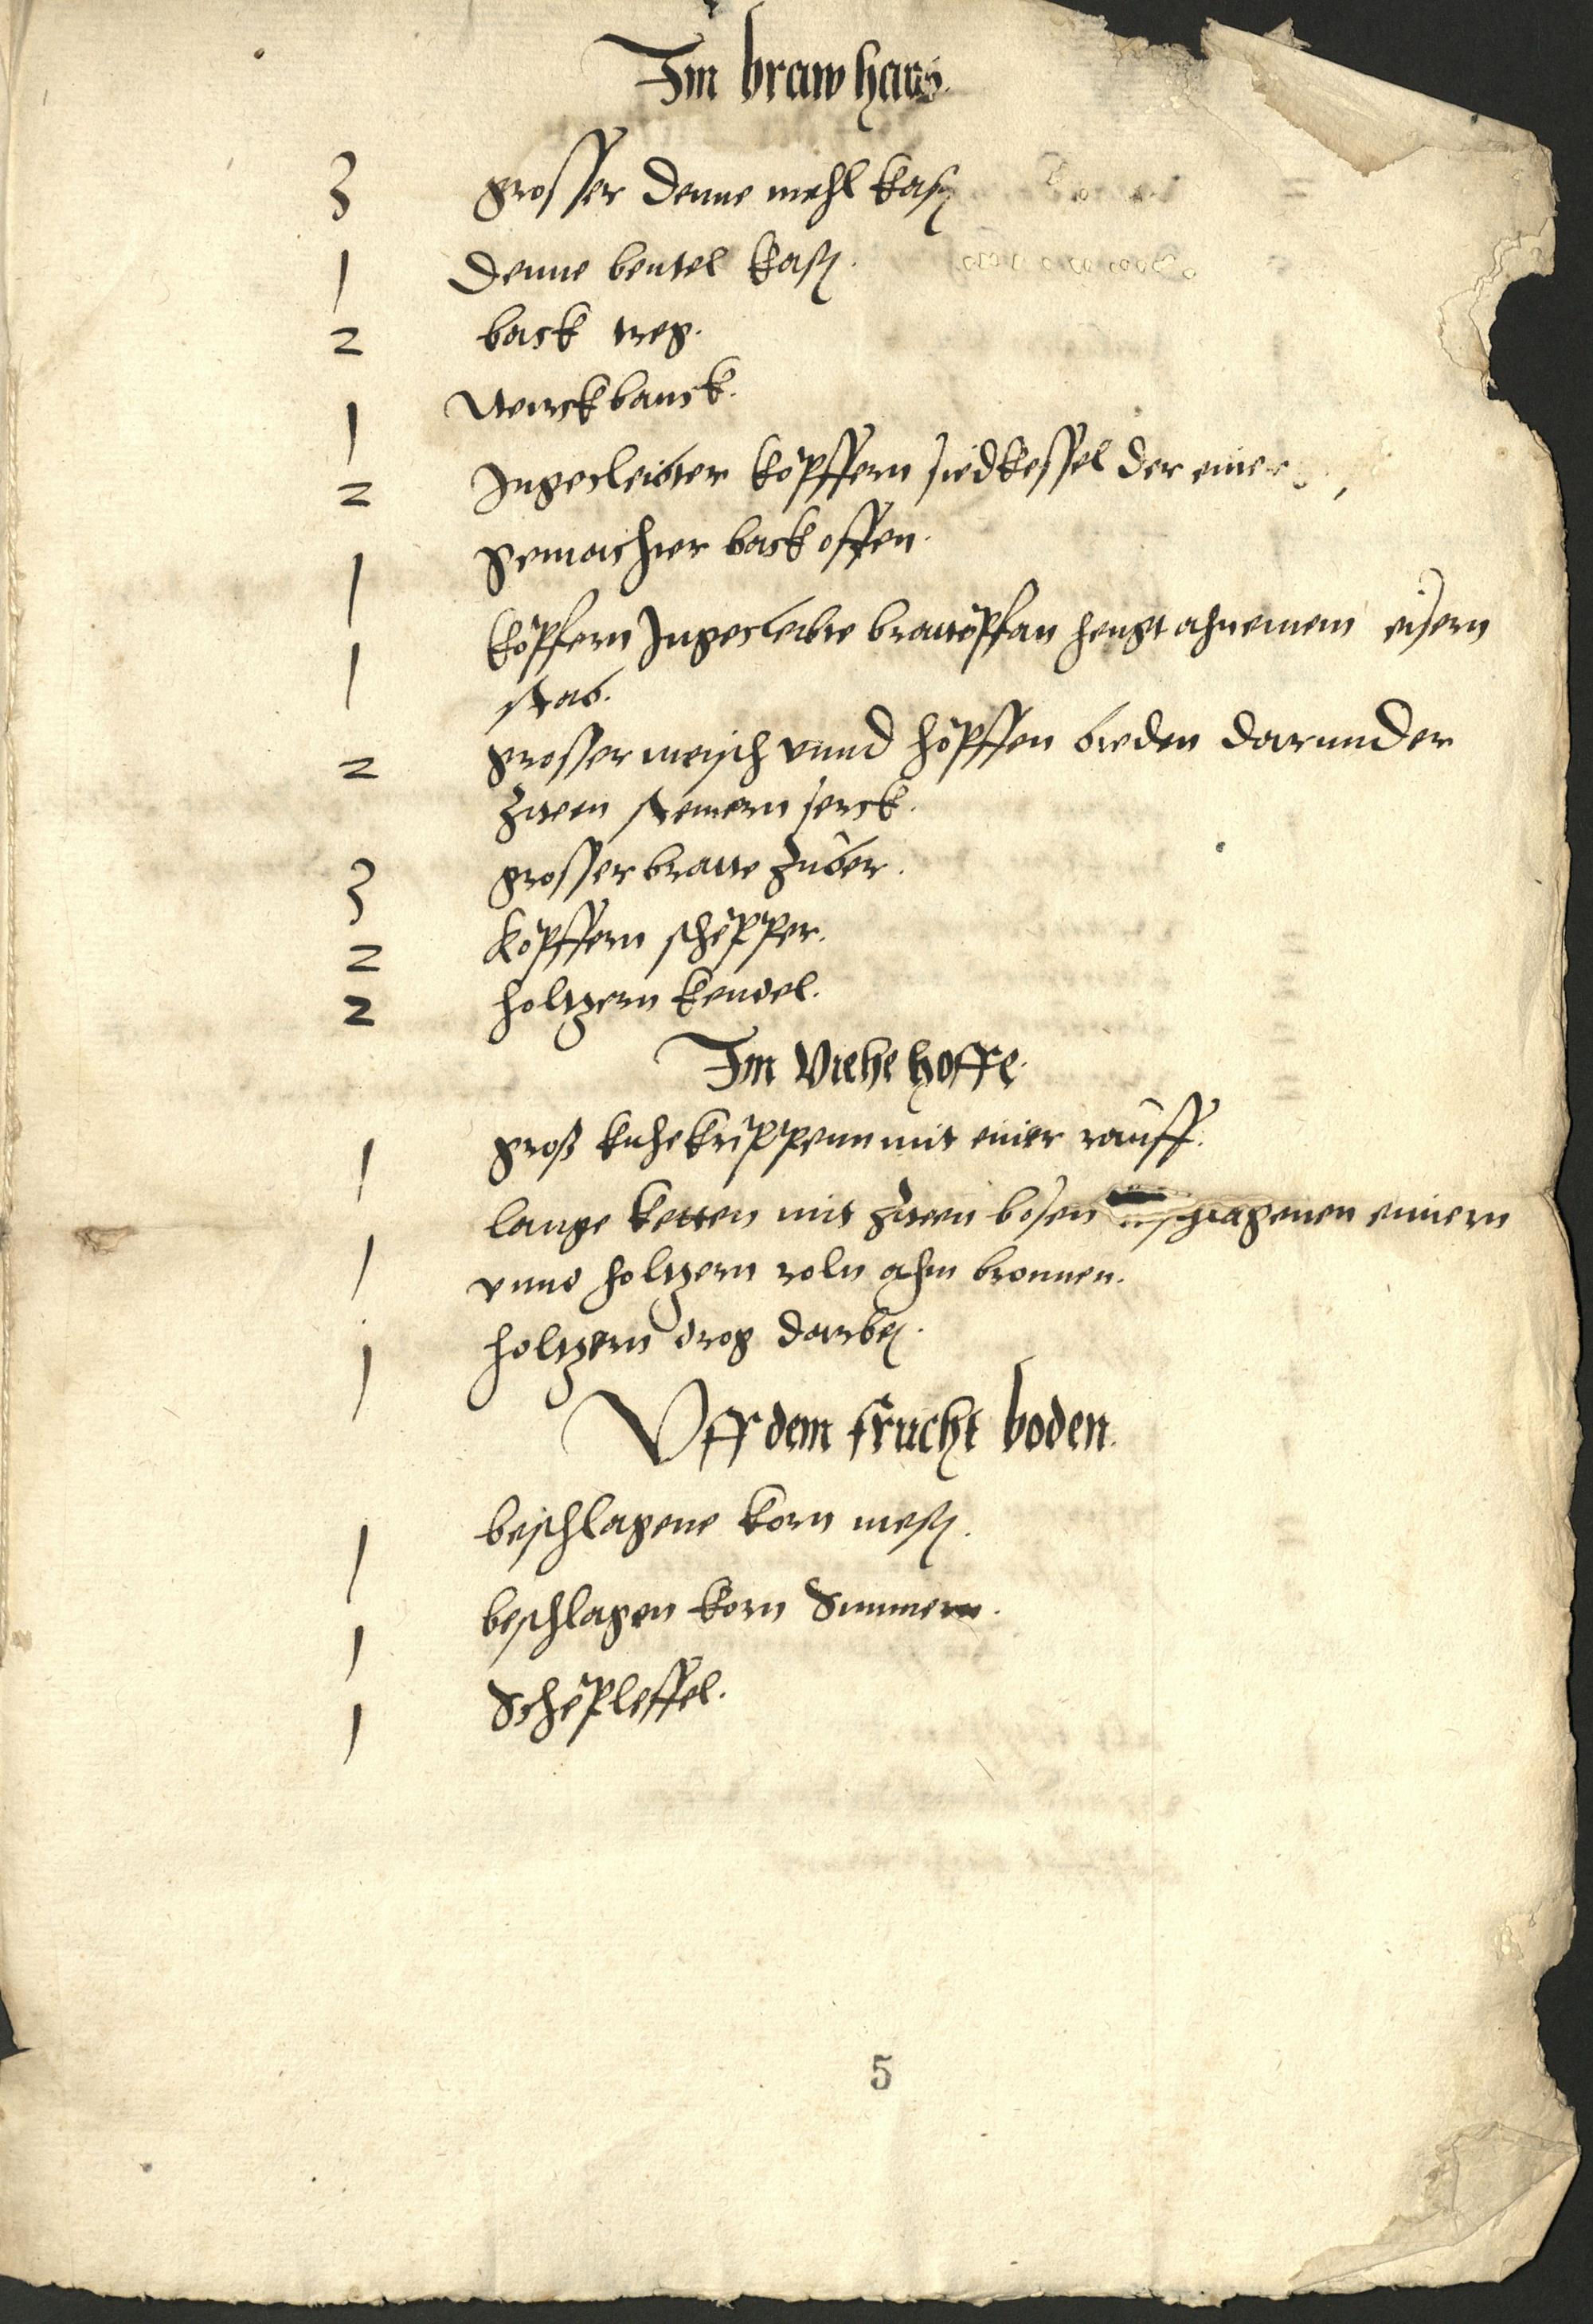 Im brawhaus.
3 grosser denne mehl kasten
1 denne beutel kasten.
2 back treg.
1 Werckbanck.
2 Ingecleibter köpffern siedkessel der einer
1 gemachter backoffen.
1 köpfern Ingecleibte brawpfan hengt ahn einem eisern
stab.
2 grosser meisch vnnd höpffen bieden darunder
zween steinern serck.
3 grosser brawe züber.
2 köpffern schepper.
2 holtzern kendel.
Im Viehehoffe.
1 groß kuhekrippenn mit einer rauff.
1 lange ketten mit zween bosen beschlagenen eimern
vnnd holtzern roln ahm bronnen.
1 holtzern drog darbey.
Vff dem frucht boden.
1 beschlagene korn mesten.
1 beschlagen korn Simmern.
1 Schepleffel.
5